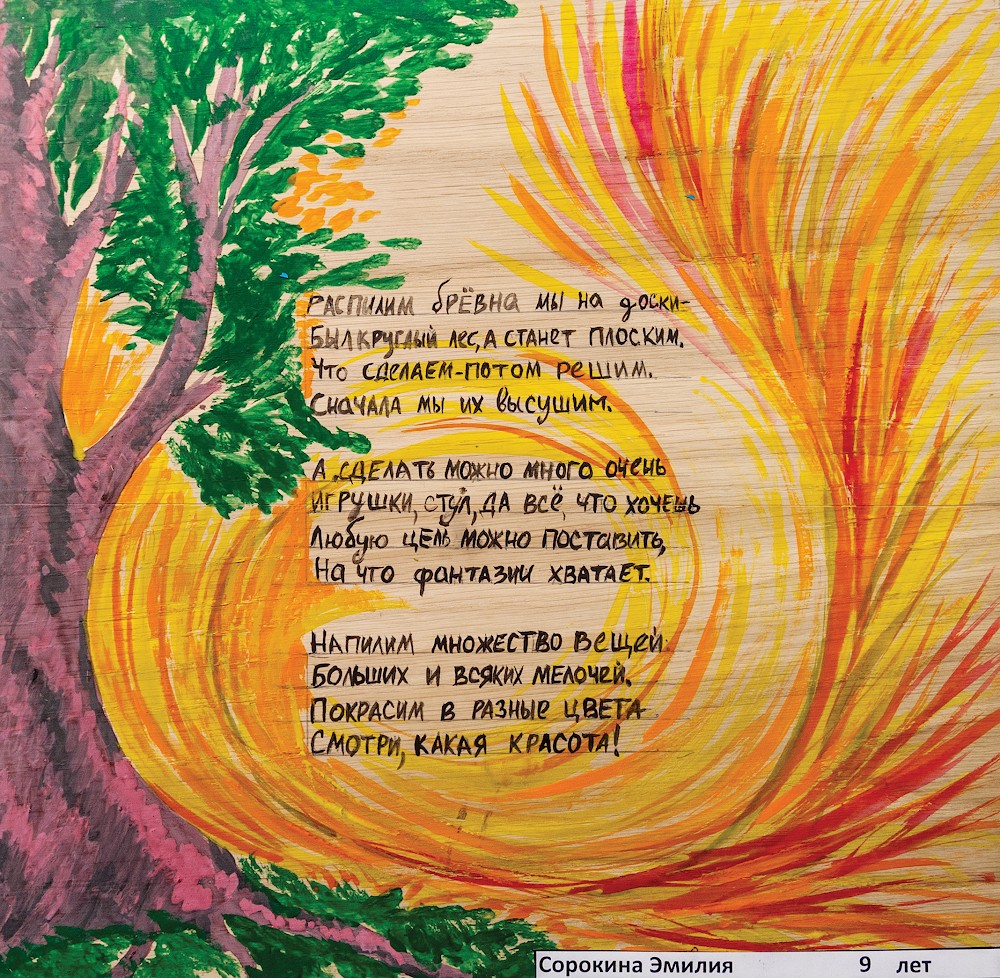 РАСПИЛИМ брЁвна мы на доски-
Был круглый лес, а станет плоским.
Что сделаем-потом решим.
Сначала мы их высушим.
А сделать можно много очень
игрушки, стул, да всё, что хочешь
Любую цель можно поставить,
На что фантазии хватает.
Напилим множество вещей
Больших и всяких мелочей.
Покрасим в разные цвета
Смотри, какая красота!
Сорокина Эмилия 9 лет